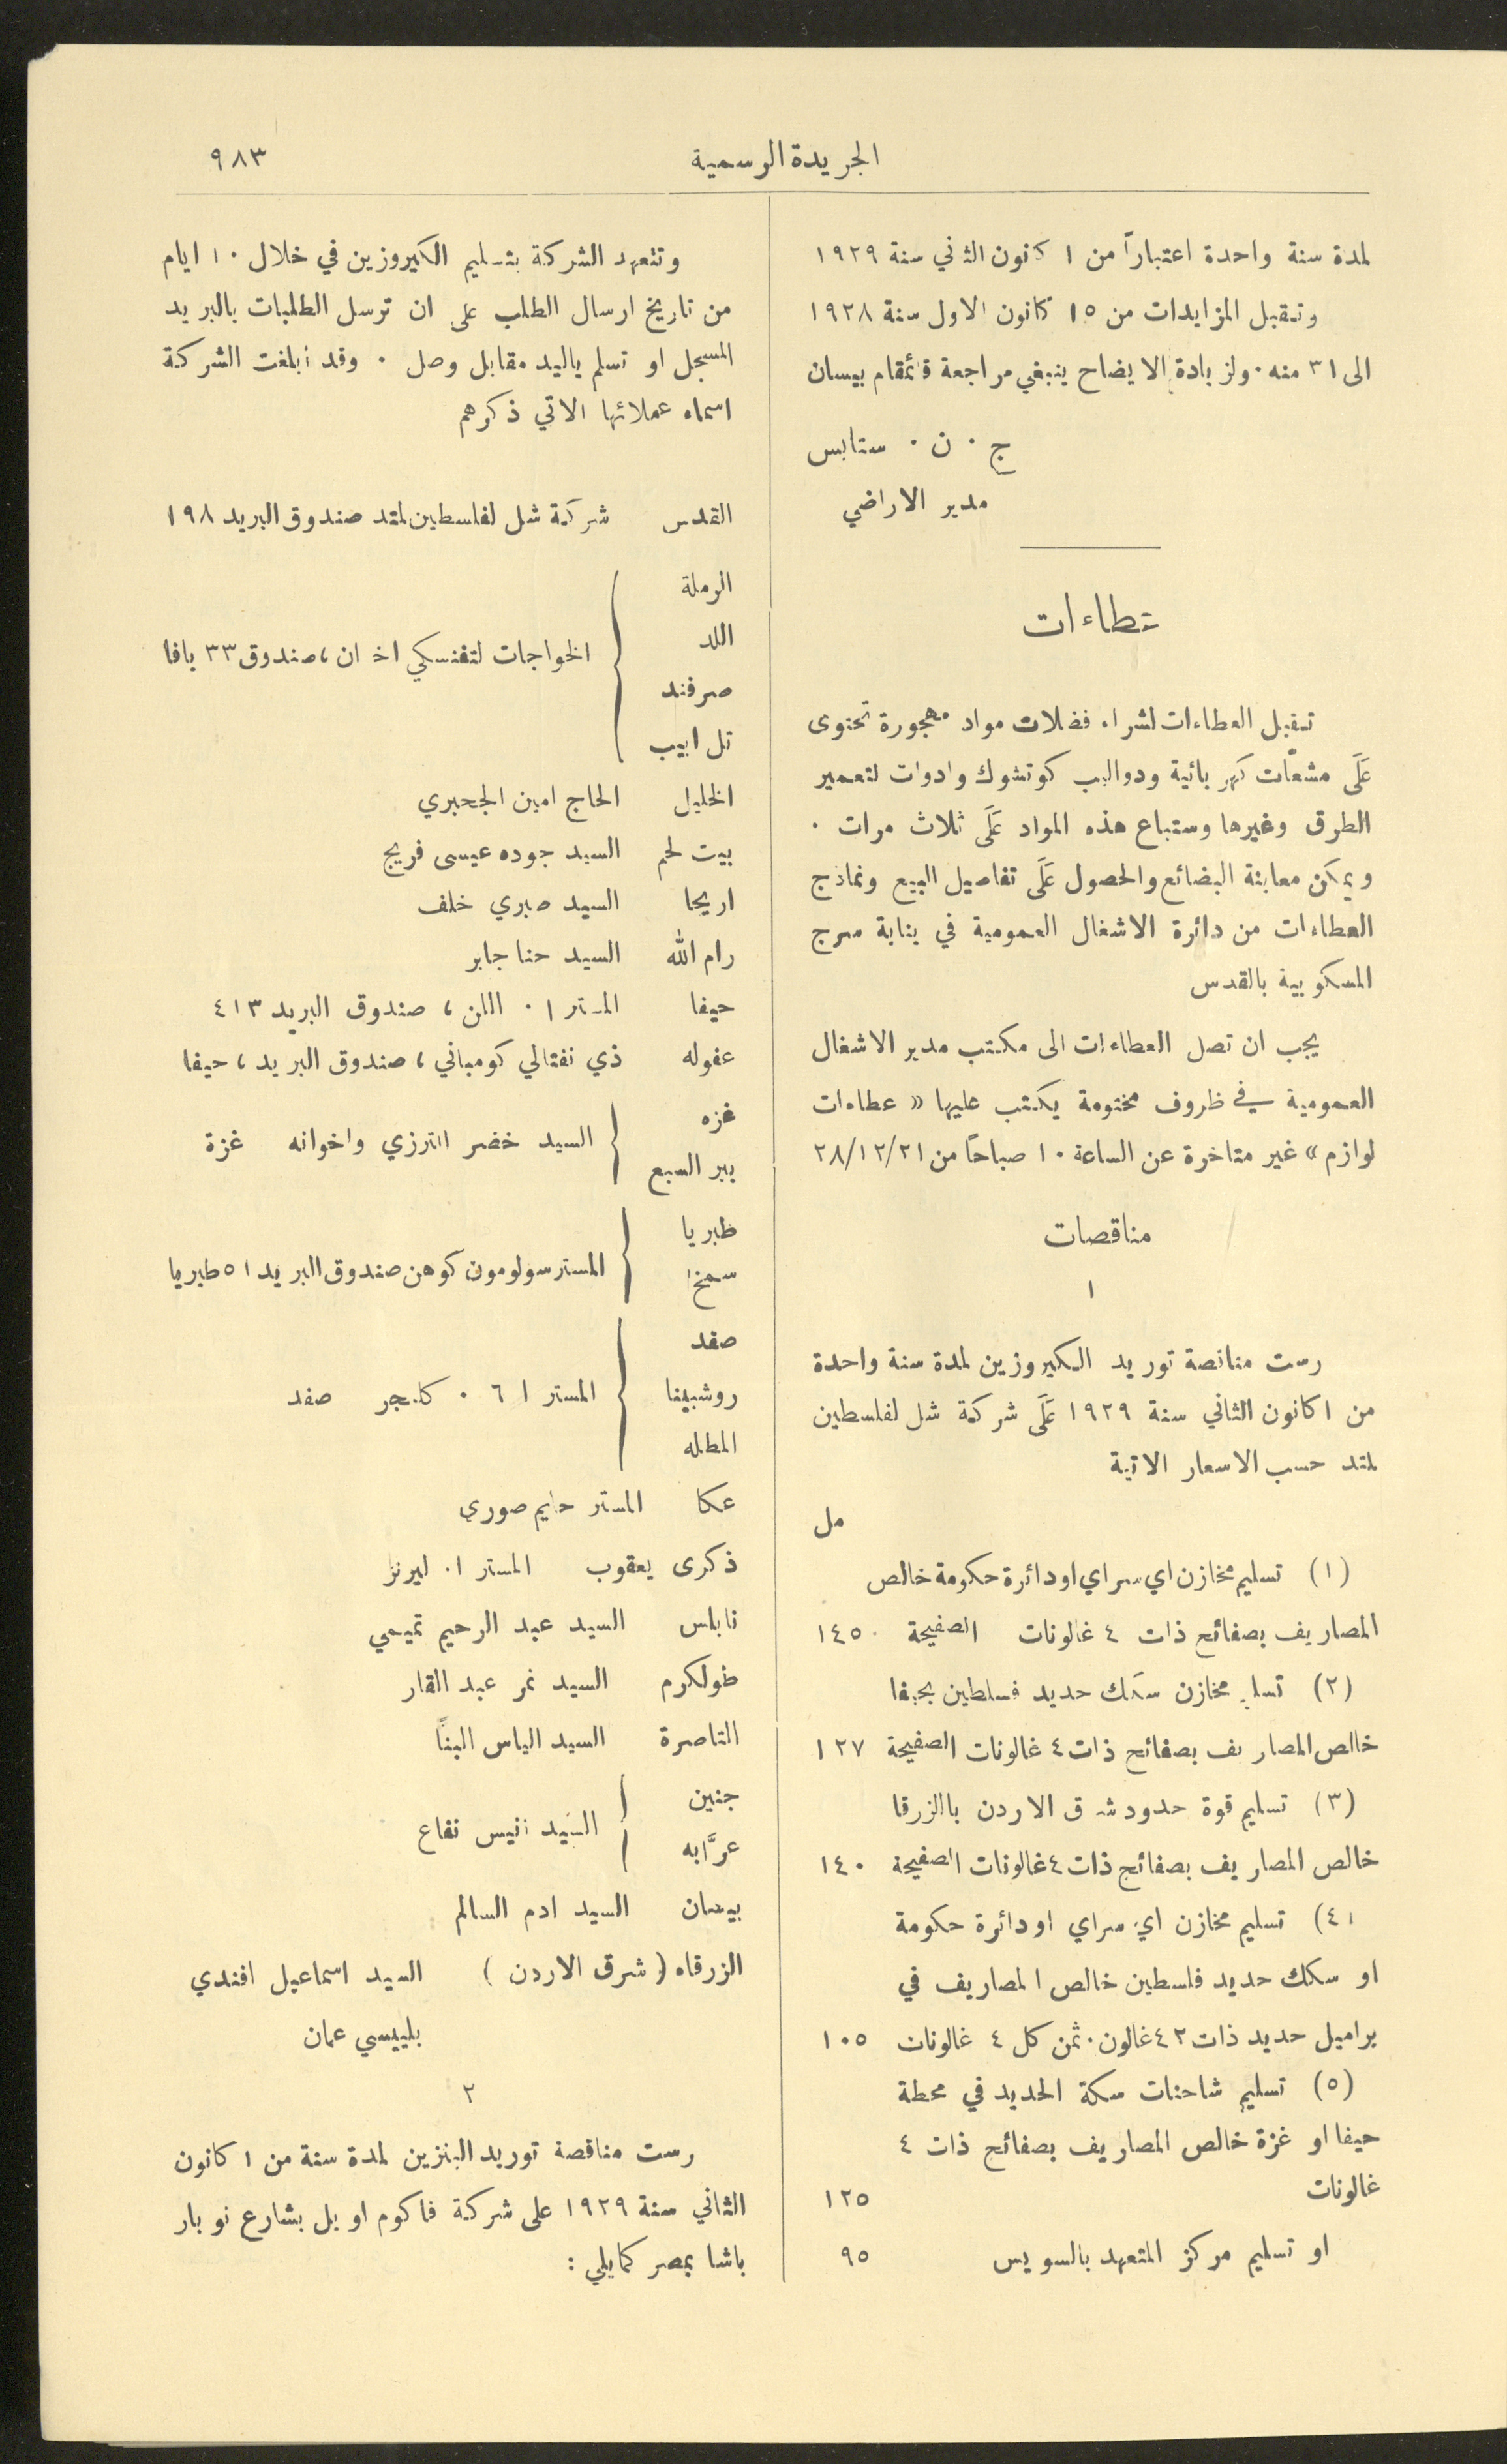 الجريدة الرسمية
٩٨٣
لمدة سنة واحدة اعتباراً من ١ كانون الثاني سنة ١٩٢٩
وتقبل المزايدات من ١٥ كانون الاول سنة ١٩٢٨
الى ٣١ منه ٠ ولزيادة الايضاح ينبغي مراجعة قائمقام بيسان
ج ٠ ن ٠ ستابس
مدير الاراضي
عطاءات
تقبل العطاءات لشراء فضلات مواد مهجورة تحتوى
عَلَى مشعّات كهربائية ودواليب كوتشوك وادوات لتعمير
الطرق وغيرها وستباع هذه المواد عَلَى ثلاث مرات ٠
ويمكن معاينة البضائع والحصول عَلَى تفاصيل البيع ونماذج
العطاءات من دائرة الاشغال العمومية في بناية مسرج
المسكوبية بالقدس
يجب ان تصل العطاءات الى مكتب مدير الاشغال
العمومية في ظروف مختومة يكتب عليها « عطاءات
لوازم » غير متاخرة عن الساعة ١٠ صباحاً من ٢٨/١٢/٢١
مناقصات
١
رست مناقصة توريد الكيروزين لمدة سنة واحدة
من ١ كانون الثاني سنة ١٩٢٩ عَلَى شركة شل لفلسطين
لمتد حسب الاسعار الاتية
مل
(١) تسليم مخازن اي سراي او دائرة حكومة خالص
المصاريف بصفائح ذات ٤ غالونات الصفيحة ١٤٥
(٢) تسليم مخازن سكك حديد فسلطين بحيفا
خالص المصاريف بصفائح ذات ٤ غالونات الصفيحة ١٢٧
(٣) تسليم قوة حدود شرق الاردن بالزرقا
خالص المصاريف بصفائح ذات ٤ غالونات الصفيحة ١٤٠
(٤) تسليم مخازن اي سراي او دائرة حكومة
او سكك حديد فلسطين خالص المصاريف في
براميل حديد ذات ٤٢ غالون ٠ ثمن كل ٤ غالونات ١٠٥
(٥) تسليم شاحنات سكة الحديد في محطة
حيفا او غزة خالص المصاريف بصفائح ذات ٤
غالونات ١٢٥
او تسليم مركز المتعهد بالسويس ٩٥
وتتعهد الشركة بتسليم الكيروزين في خلال ١٠ ايام
من تاريخ ارسال الطلب على ان ترسل الطلبات بالبريد
المسجل او تسلم ياليد مقابل وصل ٠ وقد أبلغت الشركة
اسماء عملائها الاتي ذكرهم
القدس شركة شل لفلسطين لمتد صندوق البريد ١٩٨
الرملة
اللد
صرفند
تل ابيب
الخواجات لتفنسكي اخوان، صندوق ٣٣ يافا
الخليل الحاج امين الجعبري
بيت لحم السيد جوده عيسى فريج
اريحا السيد صبري خلف
رام الله السيد حنا جابر
حيفا المستر ا ٠ اللن ، صندوق البريد ٤١٣
عفوله ذي نفتالي كومباني ، صندوق البريد ، حيفا
غزه
بير السبع
السيد خضر الترزي واخوانه غزة
طبريا
سمخ
المستر سولومون كوهن صندوق البريد ٥١ طبريا
صفد
روشبينا
المطله
المستر صفد
عكا المستر حايم صوري
ذكرى يعقوب المستر ا٠ ليرنر
نابلس السيد عبد الرحيم تميمي
طولكرم السيد نمر عبد القار
الناصرة السيد الياس البنّا
جنين
عرَّابه
السيد انيس نفاع
بيسان السيد ادم السالم
الزرقاء (شرق الاردن ) السيد اسماعيل افندي
بلبيسي عمان
٢
رست مناقصة توريد البنزين لمدة سنة من ١ كانون
الثاني سنة ١٩٢٩ على شركة فاكوم اويل بشارع نوبار
باشا بمصر كما يلي :